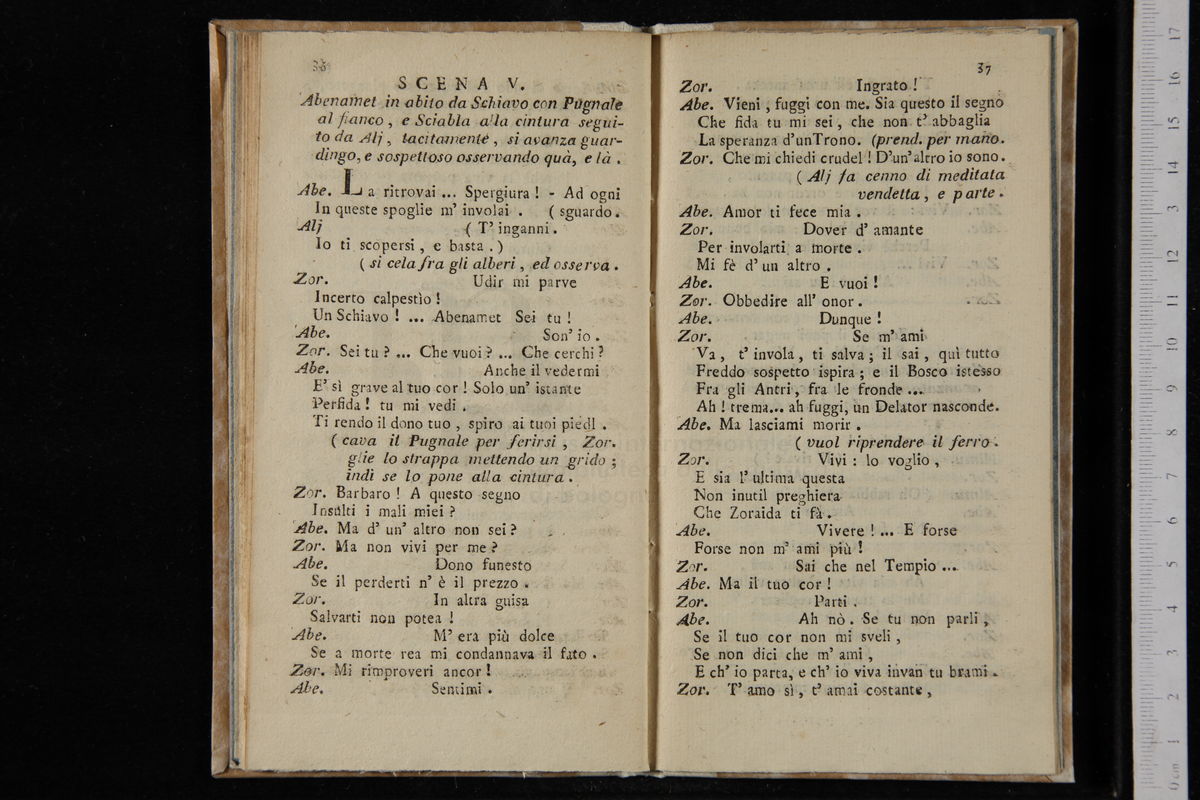 36
SCENA V.
Abenamet in abito da Schiavo con Pugnale
al fianco, e Sciabla alla cintura segui-
to da Alj, tacitamente, si avanza guar-
dingo, e sospettoso osservando quà, e là.
Abe. La ritrovai ... Spergiura! - Ad ogni
In queste spoglie m' involai. (sguardo.
Alj (T' inganni.
Io ti scopersi, e basta.)
(si cela fra gli alberi, ed osserva.
Zor. Udir mi parve
Incerto calpestìo!
Un Schiavo! ... Abenamet Sei tu!
Abe. Son' io.
Zor. Sei tu? ... Che vuoi? ... Che cerchi?
Abe. Anche il vedermi
E' sì grave al tuo cor! Solo un' istante
Perfida! tu mi vedi.
Ti rendo il dono tuo, spiro ai tuoi piedI.
(cava il Pugnale per ferirsi, Zor.
glie lo strappa mettendo un grido;
indi se lo pone alla cintura.
Zor. Barbaro! A questo segno
Insulti i mali miei?
Abe. Ma d' un' altro non sei?
Zor. Ma non vivi per me?
Abe. Dono funesto
Se il perderti n' è il prezzo.
Zor. In altra guisa
Salvarti non potea!
Abe. M' era più dolce
Se a morte rea mi condannava il fato.
Zor. Mi rimproveri ancor!
Abe. Sentimi.
37
Zor. Ingrato!
Abe. Vieni, fuggi con me. Sia questo il segno
Che fida tu mi sei, che non t' abbaglia
La speranza d'unTrono. (prend. per mano.
Zor. Che mi chiedi crudel! D'un' altro io sono.
(Alj fa cenno di meditata
vendetta, e parte.
Abe. Amor ti fece mia.
Zor. Dover d' amante
Per involarti a morte.
Mi fè d' un altro.
Abe. E vuoi!
Zor. Obbedire all' onor.
Abe. Dunque!
Zor. Se m' ami
Va, t' invola, ti salva; il sai, quì tutto
Freddo sospetto ispira; e il Bosco istesso
Fra gli Antri, fra le fronde ...
Ah! trema... ah fuggi, un Delator nasconde.
Abe. Ma lasciami morir.
(vuol riprendere il ferro.
Zor. Vivi: lo voglio,
E sia l' ultima questa
Non inutil preghiera
Che Zoraida ti fà.
Abe. Vivere! ... E forse
Forse non m' ami più!
Zor. Sai che nel Tempio ...
Abe. Ma il tuo cor!
Zor. Parti.
Abe. Ah nò. Se tu non parli,
Se il tuo cor non mi sveli,
Se non dici che m' ami,
E ch' io parta, e ch' io viva invan tu brami.
Zor. T' amo sì, t' amai costante,
0 cm 1 2 3 4 5 6 7 8 9 10 11 12 13 14 15 16 17